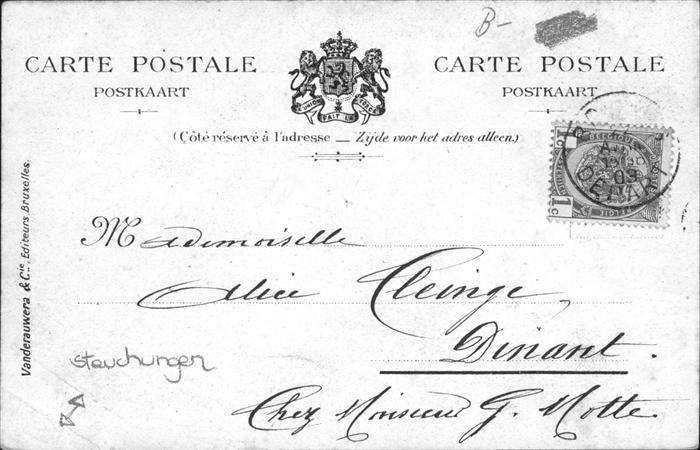 B-
CARTE POSTALE
POSTKAART
L'UNION FAIT LA FORCE
CARTE POSTALE
POSTKAART
(Côté réservé à l'adresse — Zijde voor het adres alleen.)
BELGIQUE
1c 1c
03
DEPART
Mademoiselle
Alice Cleinge
Dinant.
Chez Monsieur G. Motte.
stauchungen
Vanderauwera & Cie, Editeurs Bruxelles.